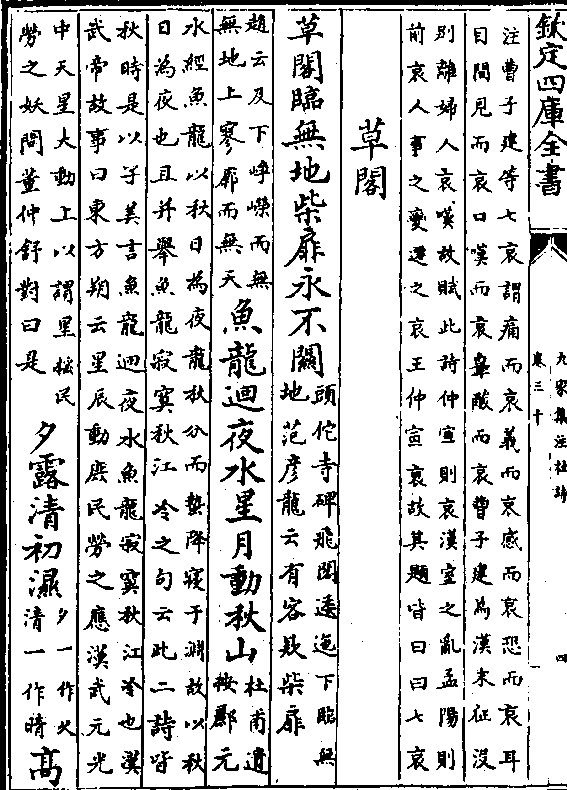 欽定四庫全書
九家集注杜詩
卷三十
四
注曹子建等七哀謂痛而哀義而哀感而哀恐而哀耳
目聞見而哀口嘆而哀鼻酸而哀曹子建為漢末征沒
别離婦人哀嘆故賦此詩仲宣則哀漢室之亂孟陽則
前哀人事之變遷之哀王仲宣哀故其題皆曰曰七哀
草閣
草閣臨無地柴扉永不關 頭佗寺碑飛閣逶迤下臨無
地范彦龍云有客款柴扉
趙云及下崢嶸而無
無地上寥廓而無天 魚龍迴夜水星月動秋山 杜甫遺
按酈元
水經魚龍以秋日為夜龍秋分而蟄降寢于淵故以秋
日為夜也且并舉魚龍寂寞秋江冷之句云此二詩皆
秋時是以子美言魚龍迴夜水魚龍寂寞秋江冷也漢
武帝故事曰東方朔云星辰動庶民勞之應漢武元光
中天星大動上以謂星揺民
勞之妖問董仲舒對曰是 夕露清初濕 夕一作久
清一作晴 高